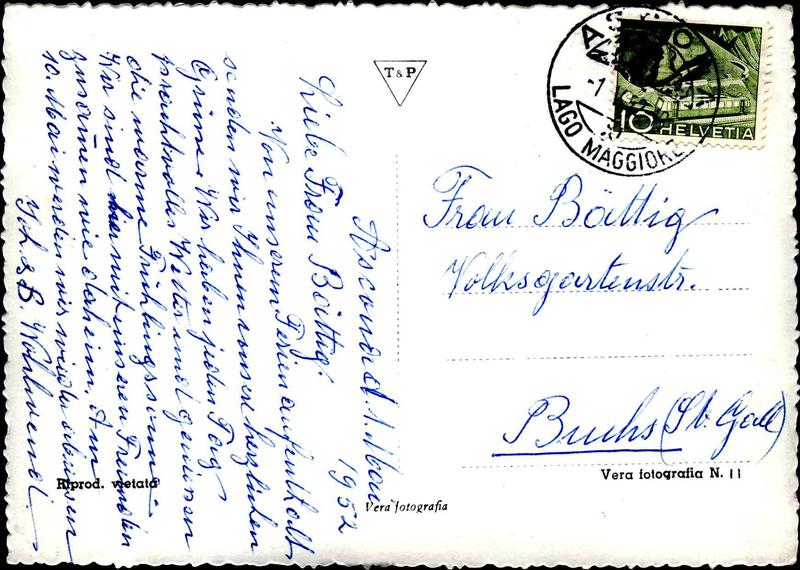 Ascona d. 1. Mai
1952
Liebe Frau Bättig!
Von unserem Ferienaufenthalt
senden wir Ihnen unsere herzlichen
Grüsse. Wir haben jeden Tag
prachtvolles Wetter und geniessen
die warme Frühlingssonne.
Wir sind hier mit unseren Freunden
zusammen wie daheim. Am
10. Mai werden wir wieder abreisen
& B. Wohlwend.
Riprod. vietata
T & P
Vera fotografia
ASCONA
-1.
LAGO MAGGIORE
10 HELVETIA
Frau Bättig
Volksgartenstr.
Buchs (St. Gall)
Vera fotografia N. 11